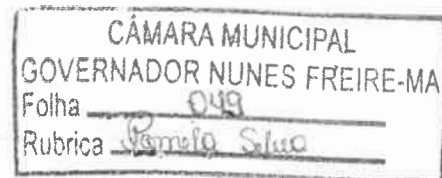 CÂMARA MUNICIPAL
GOVERNADOR NUNES FREIRE-MA
Folha 049
Rubrica Pamela Silva